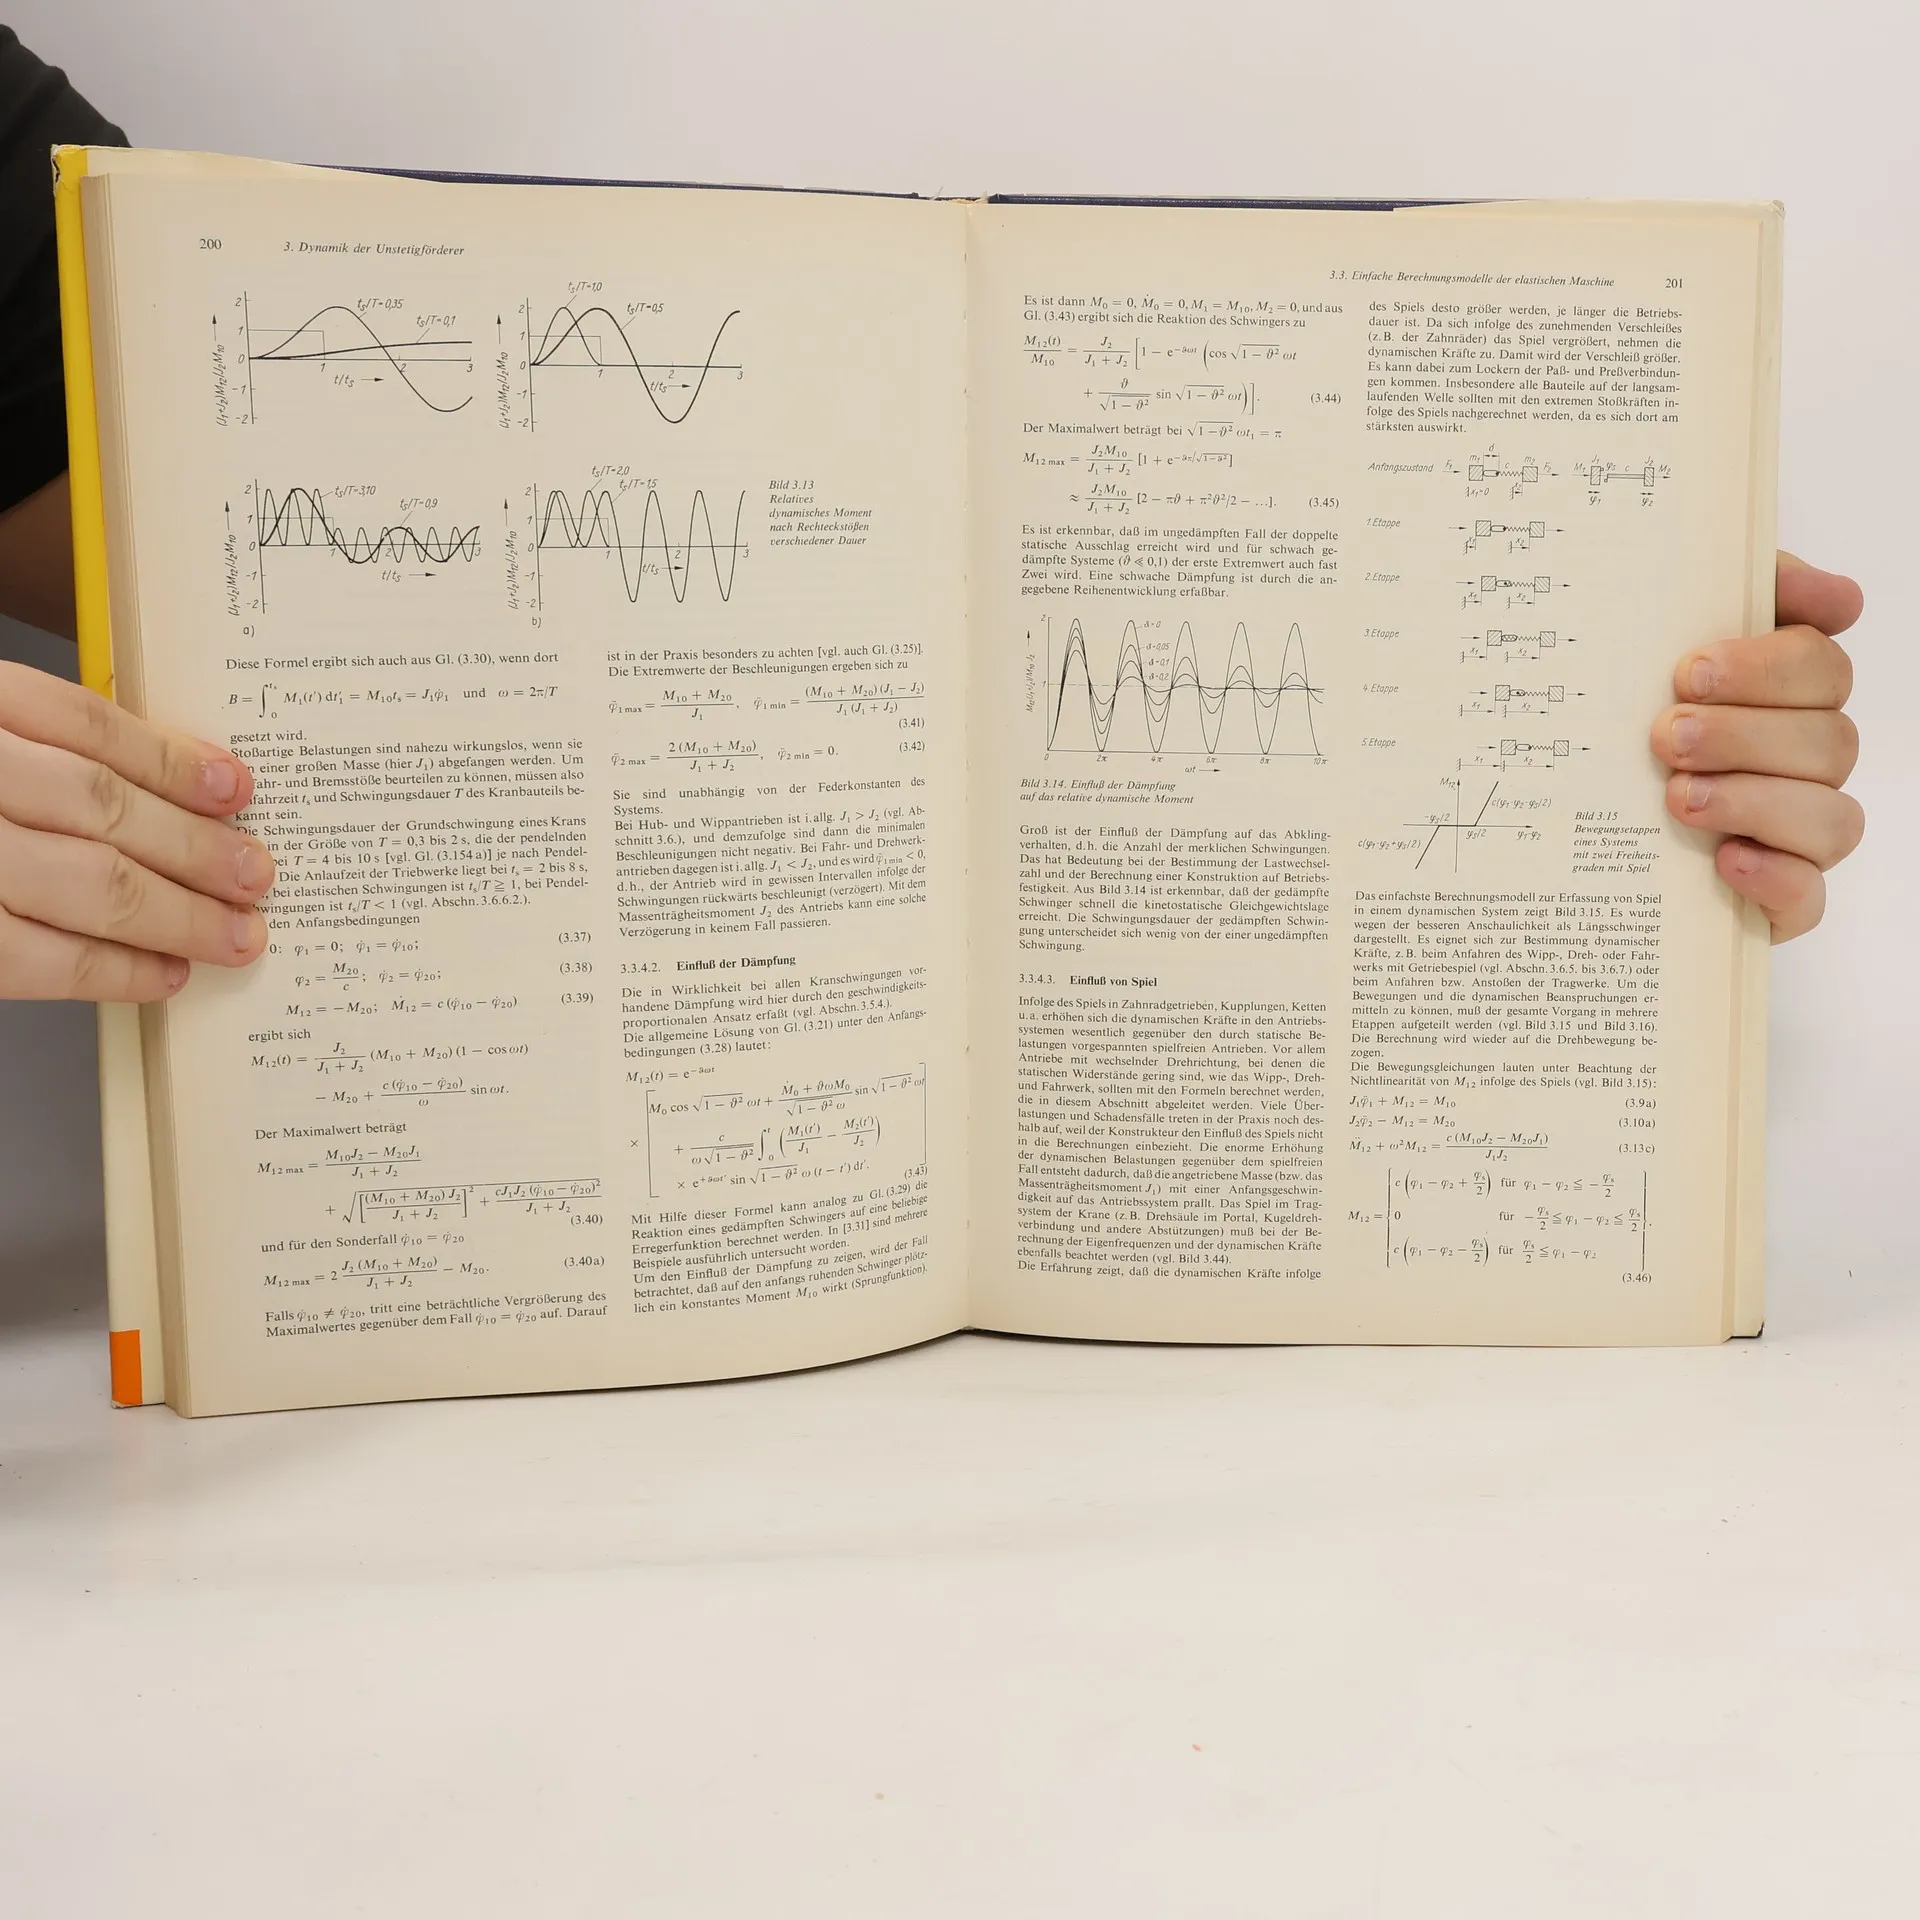 200
3. Dynamik der Unstetigförderer
2
1
0
-1
-2
(J₁+J₂)M₁₂/J₂M₁₀
tₛ/T=0,35
tₛ/T=0,1
1
2
3
t/tₛ
2
1
0
-1
-2
(J₁+J₂)M₁₂/J₂M₁₀
tₛ/T=1,0
tₛ/T=0,5
1
2
3
t/tₛ
2
1
0
-1
-2
(J₁+J₂)M₁₂/J₂M₁₀
tₛ/T=3,10
tₛ/T=0,9
1
2
3
t/tₛ
a)
2
1
0
-1
-2
(J₁+J₂)M₁₂/J₂M₁₀
tₛ/T=2,0
tₛ/T=1,5
1
2
3
t/tₛ
b)
Bild 3.13
Relatives
dynamisches Moment
nach Rechteckstößen
verschiedener Dauer
Diese Formel ergibt sich auch aus Gl. (3.30), wenn dort
B = ∫₀^tₛ M₁(t′) dt′₁ = M₁₀tₛ = J₁φ̇₁ und ω = 2π/T
gesetzt wird.
Stoßartige Belastungen sind nahezu wirkungslos, wenn sie
einer großen Masse (hier J₁) abgefangen werden. Um
fahr- und Bremsstöße beurteilen zu können, müssen also
fahrzeit tₛ und Schwingungsdauer T des Kranbauteils be-
kannt sein.
Die Schwingungsdauer der Grundschwingung eines Krans
in der Größe von T = 0,3 bis 2 s, die der pendelnden
bei T = 4 bis 10 s [vgl. Gl. (3.154 a)] je nach Pendel-
Die Anlaufzeit der Triebwerke liegt bei tₛ = 2 bis 8 s,
bei elastischen Schwingungen ist tₛ/T ≧ 1, bei Pendel-
hwingungen ist tₛ/T < 1 (vgl. Abschn. 3.6.6.2.).
den Anfangsbedingungen
0: φ₁ = 0; φ̇₁ = φ̇₁₀; (3.37)
φ₂ = M₂₀/c; φ̇₂ = φ̇₂₀; (3.38)
M₁₂ = −M₂₀; Ṁ₁₂ = c (φ̇₁₀ − φ̇₂₀) (3.39)
ergibt sich
M₁₂(t) = J₂/(J₁ + J₂) (M₁₀ + M₂₀) (1 − cos ωt)
− M₂₀ + c (φ̇₁₀ − φ̇₂₀)/ω sin ωt.
Der Maximalwert beträgt
M₁₂ max = (M₁₀J₂ − M₂₀J₁)/(J₁ + J₂)
+ √([(M₁₀ + M₂₀) J₂/(J₁ + J₂)]² + cJ₁J₂ (φ̇₁₀ − φ̇₂₀)²/(J₁ + J₂))
(3.40)
und für den Sonderfall φ̇₁₀ = φ̇₂₀
M₁₂ max = 2 J₂ (M₁₀ + M₂₀)/(J₁ + J₂) − M₂₀. (3.40a)
Falls φ̇₁₀ ≠ φ̇₂₀, tritt eine beträchtliche Vergrößerung des
Maximalwertes gegenüber dem Fall φ̇₁₀ = φ̇₂₀ auf. Darauf
ist in der Praxis besonders zu achten [vgl. auch Gl. (3.25)].
Die Extremwerte der Beschleunigungen ergeben sich zu
φ̈₁ max = (M₁₀ + M₂₀)/J₁, φ̈₁ min = (M₁₀ + M₂₀) (J₁ − J₂)/(J₁ (J₁ + J₂))
(3.41)
φ̈₂ max = 2 (M₁₀ + M₂₀)/(J₁ + J₂), φ̈₂ min = 0. (3.42)
Sie sind unabhängig von der Federkonstanten des
Systems.
Bei Hub- und Wippantrieben ist i. allg. J₁ > J₂ (vgl. Ab-
schnitt 3.6.), und demzufolge sind dann die minimalen
Beschleunigungen nicht negativ. Bei Fahr- und Drehwerk-
antrieben dagegen ist i. allg. J₁ < J₂, und es wird φ̈₁ min < 0,
d. h., der Antrieb wird in gewissen Intervallen infolge der
Schwingungen rückwärts beschleunigt (verzögert). Mit dem
Massenträgheitsmoment J₂ des Antriebs kann eine solche
Verzögerung in keinem Fall passieren.
3.3.4.2. Einfluß der Dämpfung
Die in Wirklichkeit bei allen Kranschwingungen vor-
handene Dämpfung wird hier durch den geschwindigkeits-
proportionalen Ansatz erfaßt (vgl. Abschn. 3.5.4.).
Die allgemeine Lösung von Gl. (3.21) unter den Anfangs-
bedingungen (3.28) lautet:
M₁₂(t) = e^−ϑωt
× [M₀ cos √(1 − ϑ²) ωt + (Ṁ₀ + ϑωM₀)/(√(1 − ϑ²) ω) sin √(1 − ϑ²) ωt
+ c/(ω √(1 − ϑ²)) ∫₀^t (M₁(t′)/J₁ − M₂(t′)/J₂)
× e^+ϑωt′ sin √(1 − ϑ²) ω (t − t′) dt′.] (3.43)
Mit Hilfe dieser Formel kann analog zu Gl. (3.29) die
Reaktion eines gedämpften Schwingers auf eine beliebige
Erregerfunktion berechnet werden. In [3.31] sind mehrere
Beispiele ausführlich untersucht worden.
Um den Einfluß der Dämpfung zu zeigen, wird der Fall
betrachtet, daß auf den anfangs ruhenden Schwinger plötz-
lich ein konstantes Moment M₁₀ wirkt (Sprungfunktion).
3.3. Einfache Berechnungsmodelle der elastischen Maschine
201
Es ist dann M₀ = 0, Ṁ₀ = 0, M₁ = M₁₀, M₂ = 0, und aus
Gl. (3.43) ergibt sich die Reaktion des Schwingers zu
M₁₂(t)/M₁₀ = J₂/(J₁ + J₂) [1 − e^−ϑωt (cos √(1 − ϑ²) ωt
+ ϑ/√(1 − ϑ²) sin √(1 − ϑ²) ωt)]. (3.44)
Der Maximalwert beträgt bei √(1 − ϑ²) ωt₁ = π
M₁₂ max = J₂M₁₀/(J₁ + J₂) [1 + e^−ϑπ/√(1−ϑ²)]
≈ J₂M₁₀/(J₁ + J₂) [2 − πϑ + π²ϑ²/2 − …]. (3.45)
Es ist erkennbar, daß im ungedämpften Fall der doppelte
statische Ausschlag erreicht wird und für schwach ge-
dämpfte Systeme (ϑ ≪ 0,1) der erste Extremwert auch fast
Zwei wird. Eine schwache Dämpfung ist durch die an-
gegebene Reihenentwicklung erfaßbar.
2
1
ϑ=0
ϑ=0,05
ϑ=0,1
ϑ=0,2
0
2π
4π
6π
8π
10π
ωt
Bild 3.14. Einfluß der Dämpfung
auf das relative dynamische Moment
Groß ist der Einfluß der Dämpfung auf das Abkling-
verhalten, d. h. die Anzahl der merklichen Schwingungen.
Das hat Bedeutung bei der Bestimmung der Lastwechsel-
zahl und der Berechnung einer Konstruktion auf Betriebs-
festigkeit. Aus Bild 3.14 ist erkennbar, daß der gedämpfte
Schwinger schnell die kinetostatische Gleichgewichtslage
erreicht. Die Schwingungsdauer der gedämpften Schwin-
gung unterscheidet sich wenig von der einer ungedämpften
Schwingung.
3.3.4.3. Einfluß von Spiel
Infolge des Spiels in Zahnradgetrieben, Kupplungen, Ketten
u. a. erhöhen sich die dynamischen Kräfte in den Antriebs-
systemen wesentlich gegenüber den durch statische Be-
lastungen vorgespannten spielfreien Antrieben. Vor allem
Antriebe mit wechselnder Drehrichtung, bei denen die
statischen Widerstände gering sind, wie das Wipp-, Dreh-
und Fahrwerk, sollten mit den Formeln berechnet werden,
die in diesem Abschnitt abgeleitet werden. Viele Über-
lastungen und Schadensfälle treten in der Praxis noch des-
halb auf, weil der Konstrukteur den Einfluß des Spiels nicht
in die Berechnungen einbezieht. Die enorme Erhöhung
der dynamischen Belastungen gegenüber dem spielfreien
Fall entsteht dadurch, daß die angetriebene Masse (bzw. das
Massenträgheitsmoment J₁) mit einer Anfangsgeschwin-
digkeit auf das Antriebssystem prallt. Das Spiel im Trag-
system der Krane (z. B. Drehsäule im Portal, Kugeldreh-
verbindung und andere Abstützungen) muß bei der Be-
rechnung der Eigenfrequenzen und der dynamischen Kräfte
ebenfalls beachtet werden (vgl. Bild 3.44).
Die Erfahrung zeigt, daß die dynamischen Kräfte infolge
des Spiels desto größer werden, je länger die Betriebs-
dauer ist. Da sich infolge des zunehmenden Verschleißes
(z. B. der Zahnräder) das Spiel vergrößert, nehmen die
dynamischen Kräfte zu. Damit wird der Verschleiß größer.
Es kann dabei zum Lockern der Paß- und Preßverbindun-
gen kommen. Insbesondere alle Bauteile auf der langsam-
laufenden Welle sollten mit den extremen Stoßkräften in-
folge des Spiels nachgerechnet werden, da es sich dort am
stärksten auswirkt.
Anfangszustand F₁ m₁ d c m₂ F₂ M₁ J₁ φₛ c J₂ M₂
x₁=0 x₂ φ₁ φ₂
1. Etappe
x₁ x₂
2. Etappe
x₁ x₂
3. Etappe
x₁ x₂
4. Etappe
x₁ x₂
5. Etappe
x₁ x₂
M₁₂
c(φ₁-φ₂-φₛ/2)
-φₛ/2
φₛ/2
φ₁-φ₂
c(φ₁-φ₂+φₛ/2)
Bild 3.15
Bewegungsetappen
eines Systems
mit zwei Freiheits-
graden mit Spiel
Das einfachste Berechnungsmodell zur Erfassung von Spiel
in einem dynamischen System zeigt Bild 3.15. Es wurde
wegen der besseren Anschaulichkeit als Längsschwinger
dargestellt. Es eignet sich zur Bestimmung dynamischer
Kräfte, z. B. beim Anfahren des Wipp-, Dreh- oder Fahr-
werks mit Getriebespiel (vgl. Abschn. 3.6.5. bis 3.6.7.) oder
beim Anfahren bzw. Anstoßen der Tragwerke. Um die
Bewegungen und die dynamischen Beanspruchungen er-
mitteln zu können, muß der gesamte Vorgang in mehrere
Etappen aufgeteilt werden (vgl. Bild 3.15 und Bild 3.16).
Die Berechnung wird wieder auf die Drehbewegung be-
zogen.
Die Bewegungsgleichungen lauten unter Beachtung der
Nichtlinearität von M₁₂ infolge des Spiels (vgl. Bild 3.15):
J₁φ̈₁ + M₁₂ = M₁₀ (3.9a)
J₂φ̈₂ − M₁₂ = M₂₀ (3.10a)
M̈₁₂ + ω²M₁₂ = c (M₁₀J₂ − M₂₀J₁)/(J₁J₂) (3.13c)
c (φ₁ − φ₂ + φₛ/2) für φ₁ − φ₂ ≦ −φₛ/2
M₁₂ = 0 für −φₛ/2 ≦ φ₁ − φ₂ ≦ φₛ/2.
c (φ₁ − φ₂ − φₛ/2) für φₛ/2 ≦ φ₁ − φ₂
(3.46)